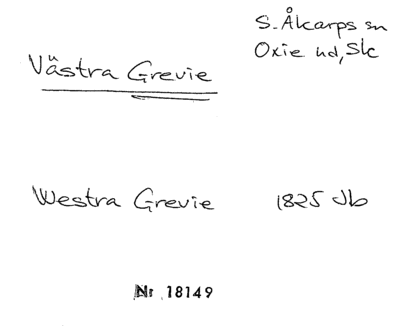 S. Åkarps sn
Oxie hd, Sk
Västra Grevie
Westra Grevie 1825 Jb
Nr 18149